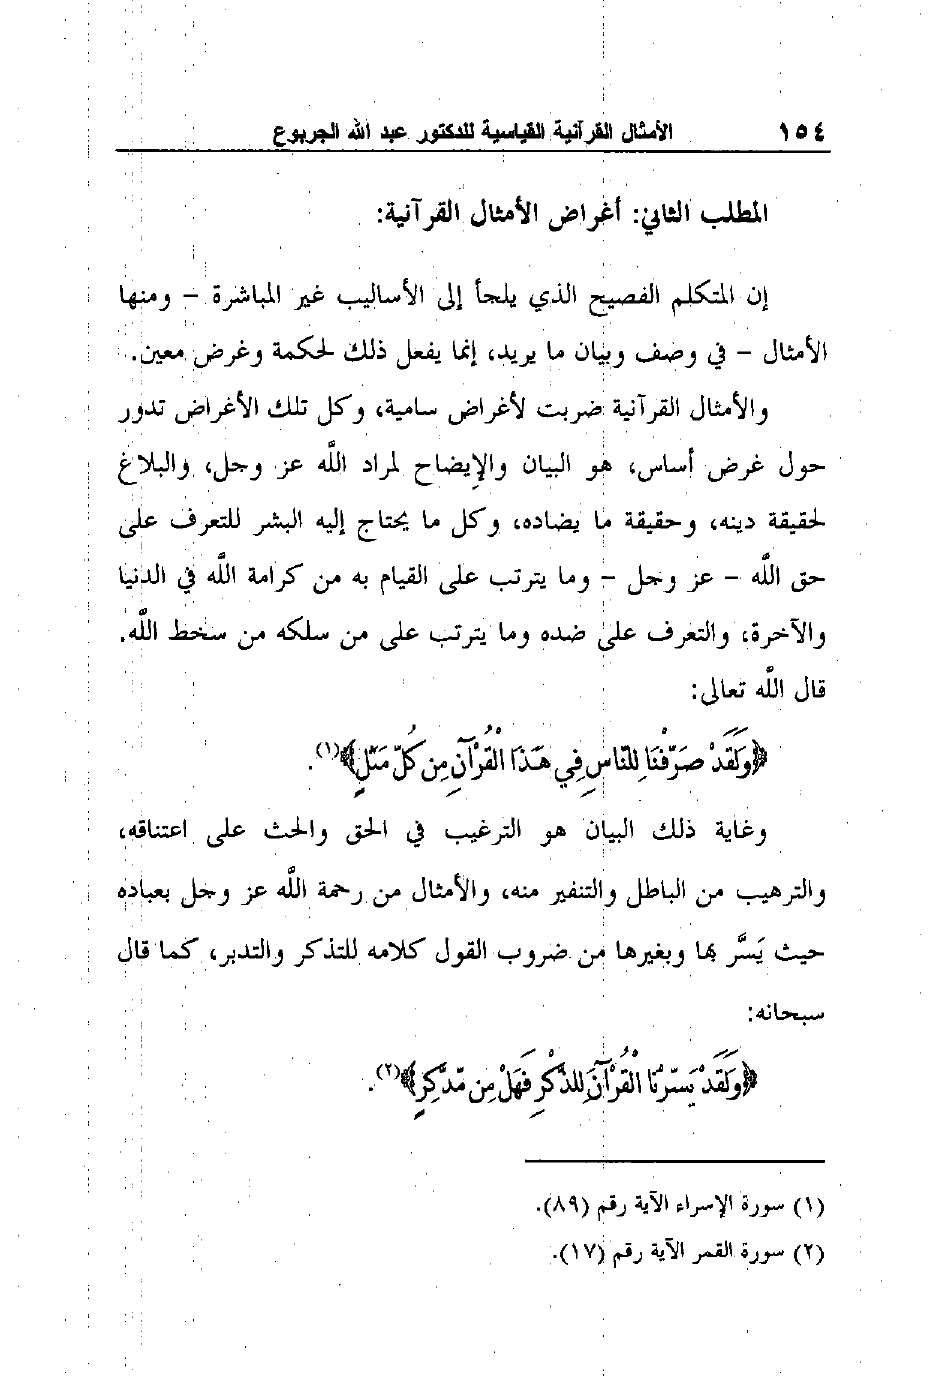 ١٥٤ الأمثال القرآنية القياسية للدكتور عبد الله الجربوع
المطلب الثاني: أغراض الأمثال القرآنية:
إن المتكلم الفصيح الذي يلجأ إلى الأساليب غير المباشرة – ومنها
الأمثال – في وصف وبيان ما يريد، إنما يفعل ذلك لحكمة وغرض معين.
والأمثال القرآنية ضربت لأغراض سامية، وكل تلك الأغراض تدور
حول غرض أساس، هو البيان والإيضاح لمراد الله عز وجل، والبلاغ
لحقيقة دينه، وحقيقة ما يضاده، وكل ما يحتاج إليه البشر للتعرف على
حق الله – عز وجل – وما يترتب على القيام به من كرامة الله في الدنيا
والآخرة، والتعرف على ضده وما يترتب على من سلكه من سخط الله.
قال الله تعالى:
﴿وَلَقَدْ صَرَّفْنَا لِلنَّاسِ فِي هَذَا الْقُرْآنِ مِن كُلِّ مَثَلٍ﴾(١).
وغاية ذلك البيان هو الترغيب في الحق والحث على اعتناقه،
والترهيب من الباطل والتنفير منه، والأمثال من رحمة الله عز وجل بعباده
حيث يَسَّر بها وبغيرها من ضروب القول كلامه للتذكر والتدبر، كما قال
سبحانه:
﴿وَلَقَدْ يَسَّرْنَا الْقُرْآنَ لِلذِّكْرِ فَهَلْ مِن مُّدَّكِرٍ﴾(٢).
(١) سورة الإسراء الآية رقم (٨٩).
(٢) سورة القمر الآية رقم (١٧).